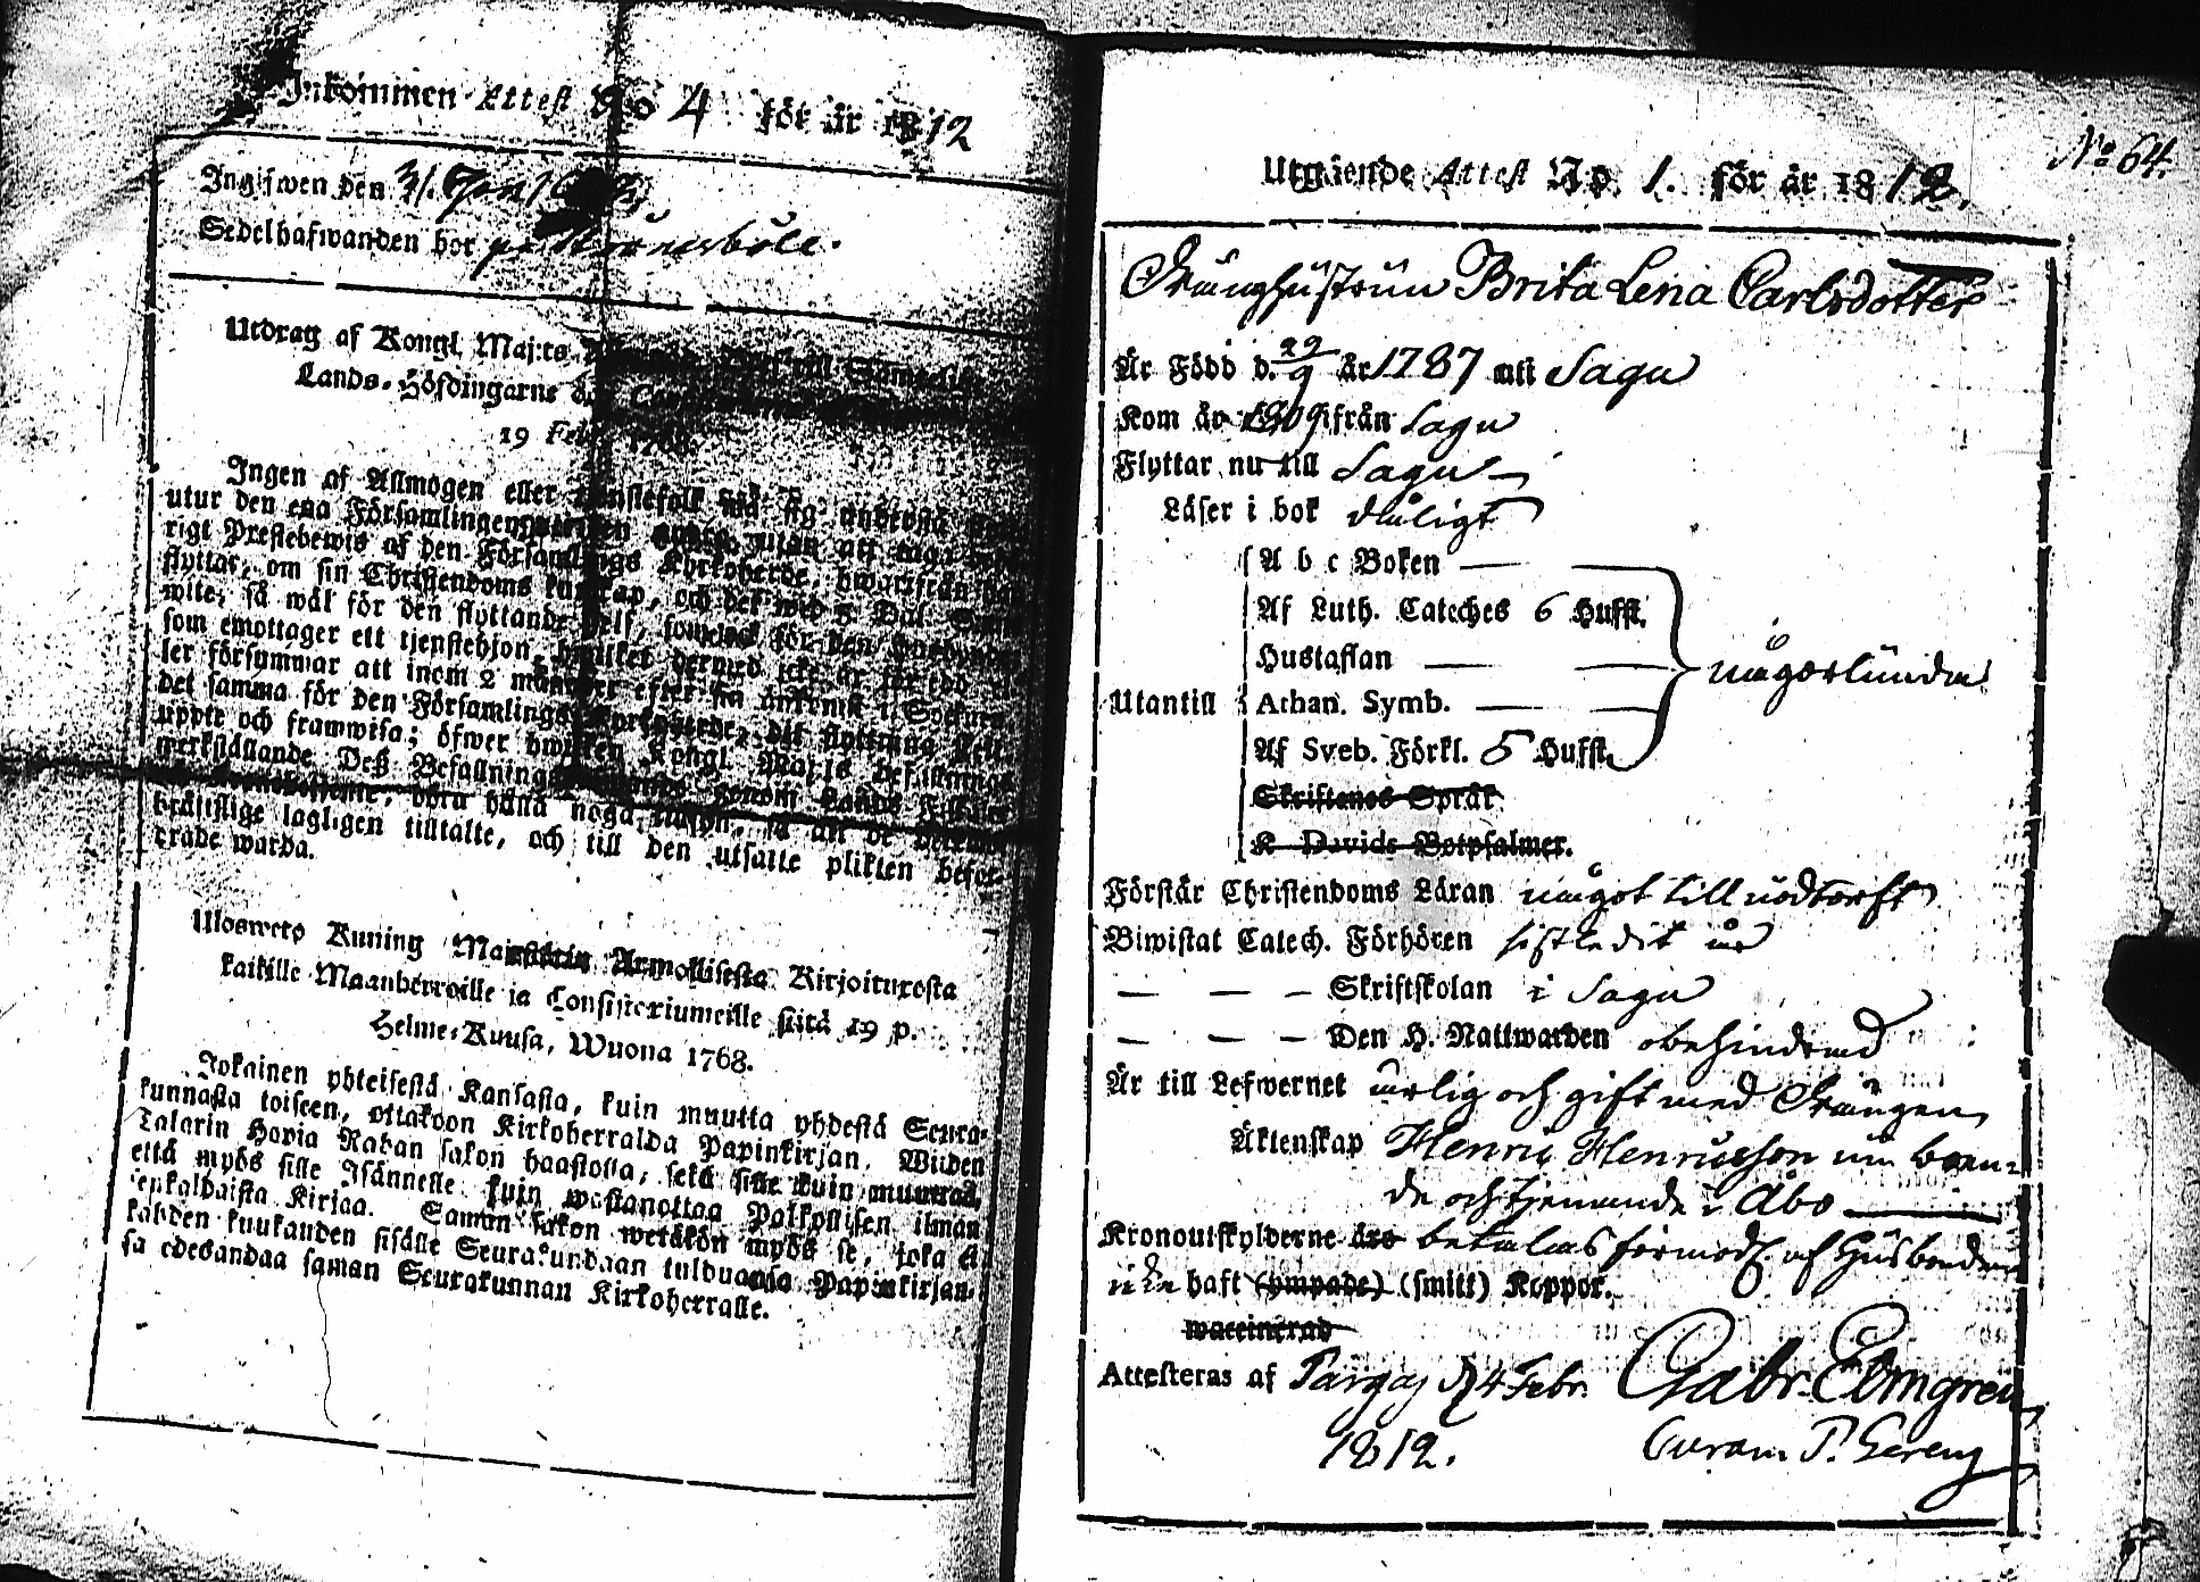 Inkommen Attest No 4 för år 1812
Ingifwen den 31.
Sedelhafwanden bor på
Utdrag af Kongl. Maj:ts till
Lands-Höfdingarne
19 Febr. 1768.
Ingen af Allmogen eller må sig
utur den ena Församlingen utan att taga
rigt Prestebewis af den Församlings Kyrkoherde, hwarifrån han
flyttar, om sin Christendoms kunskap, och det wid 5 Dal.
wite, så wäl för den flyttande sjelf, för den
som emottager ett tjenstehjon, hwilket dermed icke är
ler försummar att inom 2 månader efter sin ankomst i Socknen
det samma för den Församlings Kyrkoherde, dit flyttning skett
uppte och framwisa; öfwer hwilken Kongl. Maj:ts befallnings
werkställande Deß Befallningshafwande genom Lands
böra hålla noga tillsyn, så att de
brättslige lagligen tilltalte, och till den utsatte plikten befor-
trade warda.
Ulosweto Kuning Majestetin Armollisesta Kirjoituxesta
kaikille Maanherroille ja Consistoriumeille siitä 19 p.
Helme-Kuusa, Wuona 1768.
Jokainen yhteisestä Kansasta, kuin muutta yhdestä Seura-
kunnasta toiseen, ottakoon Kirkoherralda Papinkirjan, Wiiden
Talarin Hopia Rahan sakon haastolla, sekä sille kuin muuttaa,
että myös sille Isännelle kuin wastanottaa Palkollisen ilman
senkaldaista Kirjaa. Saman sakon wetäkön myös se, joka ei
kahden kuukauden sisälle Seurakundaan tulduansa Papinkirjan-
sa edesandaa saman Seurakunnan Kirkoherralle.
No 64.
Utgående Attest No. 1. för år 1812.
Dränghustrun Brita Lena Carlsdotter
Är Född d. 29/9 år 1787 uti Sagu
Kom år 1809 ifrån Sagu
Flyttar nu till Sagu
Läser i bok dåligt
A b c Boken
Af Luth. Cateches 6 Hufst.
Hustaflan någorlunda
Utantill Athan. Symb.
Af Sveb. Förkl. 5 Hufst.
Skriftenes Språk
K Davids Botpsalmer.
Förstår Christendoms Läran något till nödtorft
Biwistat Catech. Förhören sistledit år
— — — Skriftskolan i Sagu
— — — Den H. Nattwarden obehindrad
Är till Lefwernet ärlig och gift med Drängen
Äktenskap Henric Henricsson nu boen-
de och tjenande i Åbo
Kronoutskylderne äro betalas förmodl. af Husbonden
icke haft (ympade) (smitt) Koppor.
waccinerad
Attesteras af Pargas d 4 Febr. Gabr. Elmgren
1812. Curam P. Gereng